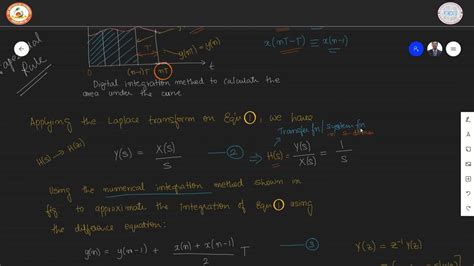 x(nT-T) ≡ x(n-1)
y(nT) = y(n)
T
Rule
0 (n-1)T nT t
Digital integration method to calculate the
area under the curve
Applying the Laplace transform on Equ 1, we have
H(s) → H(z)
Transfer fn/ System fn
Y(s) = X(s)/s — 2
⇒ H(s) = Y(s)/X(s) = 1/s
Using the numerical integration method shown in
fig to approximate the integration of Equ 1 using
the difference equation:
y(n) = y(n-1) + x(n) + x(n-1)/2 T — 3
Y(z) = z⁻¹ Y(z)